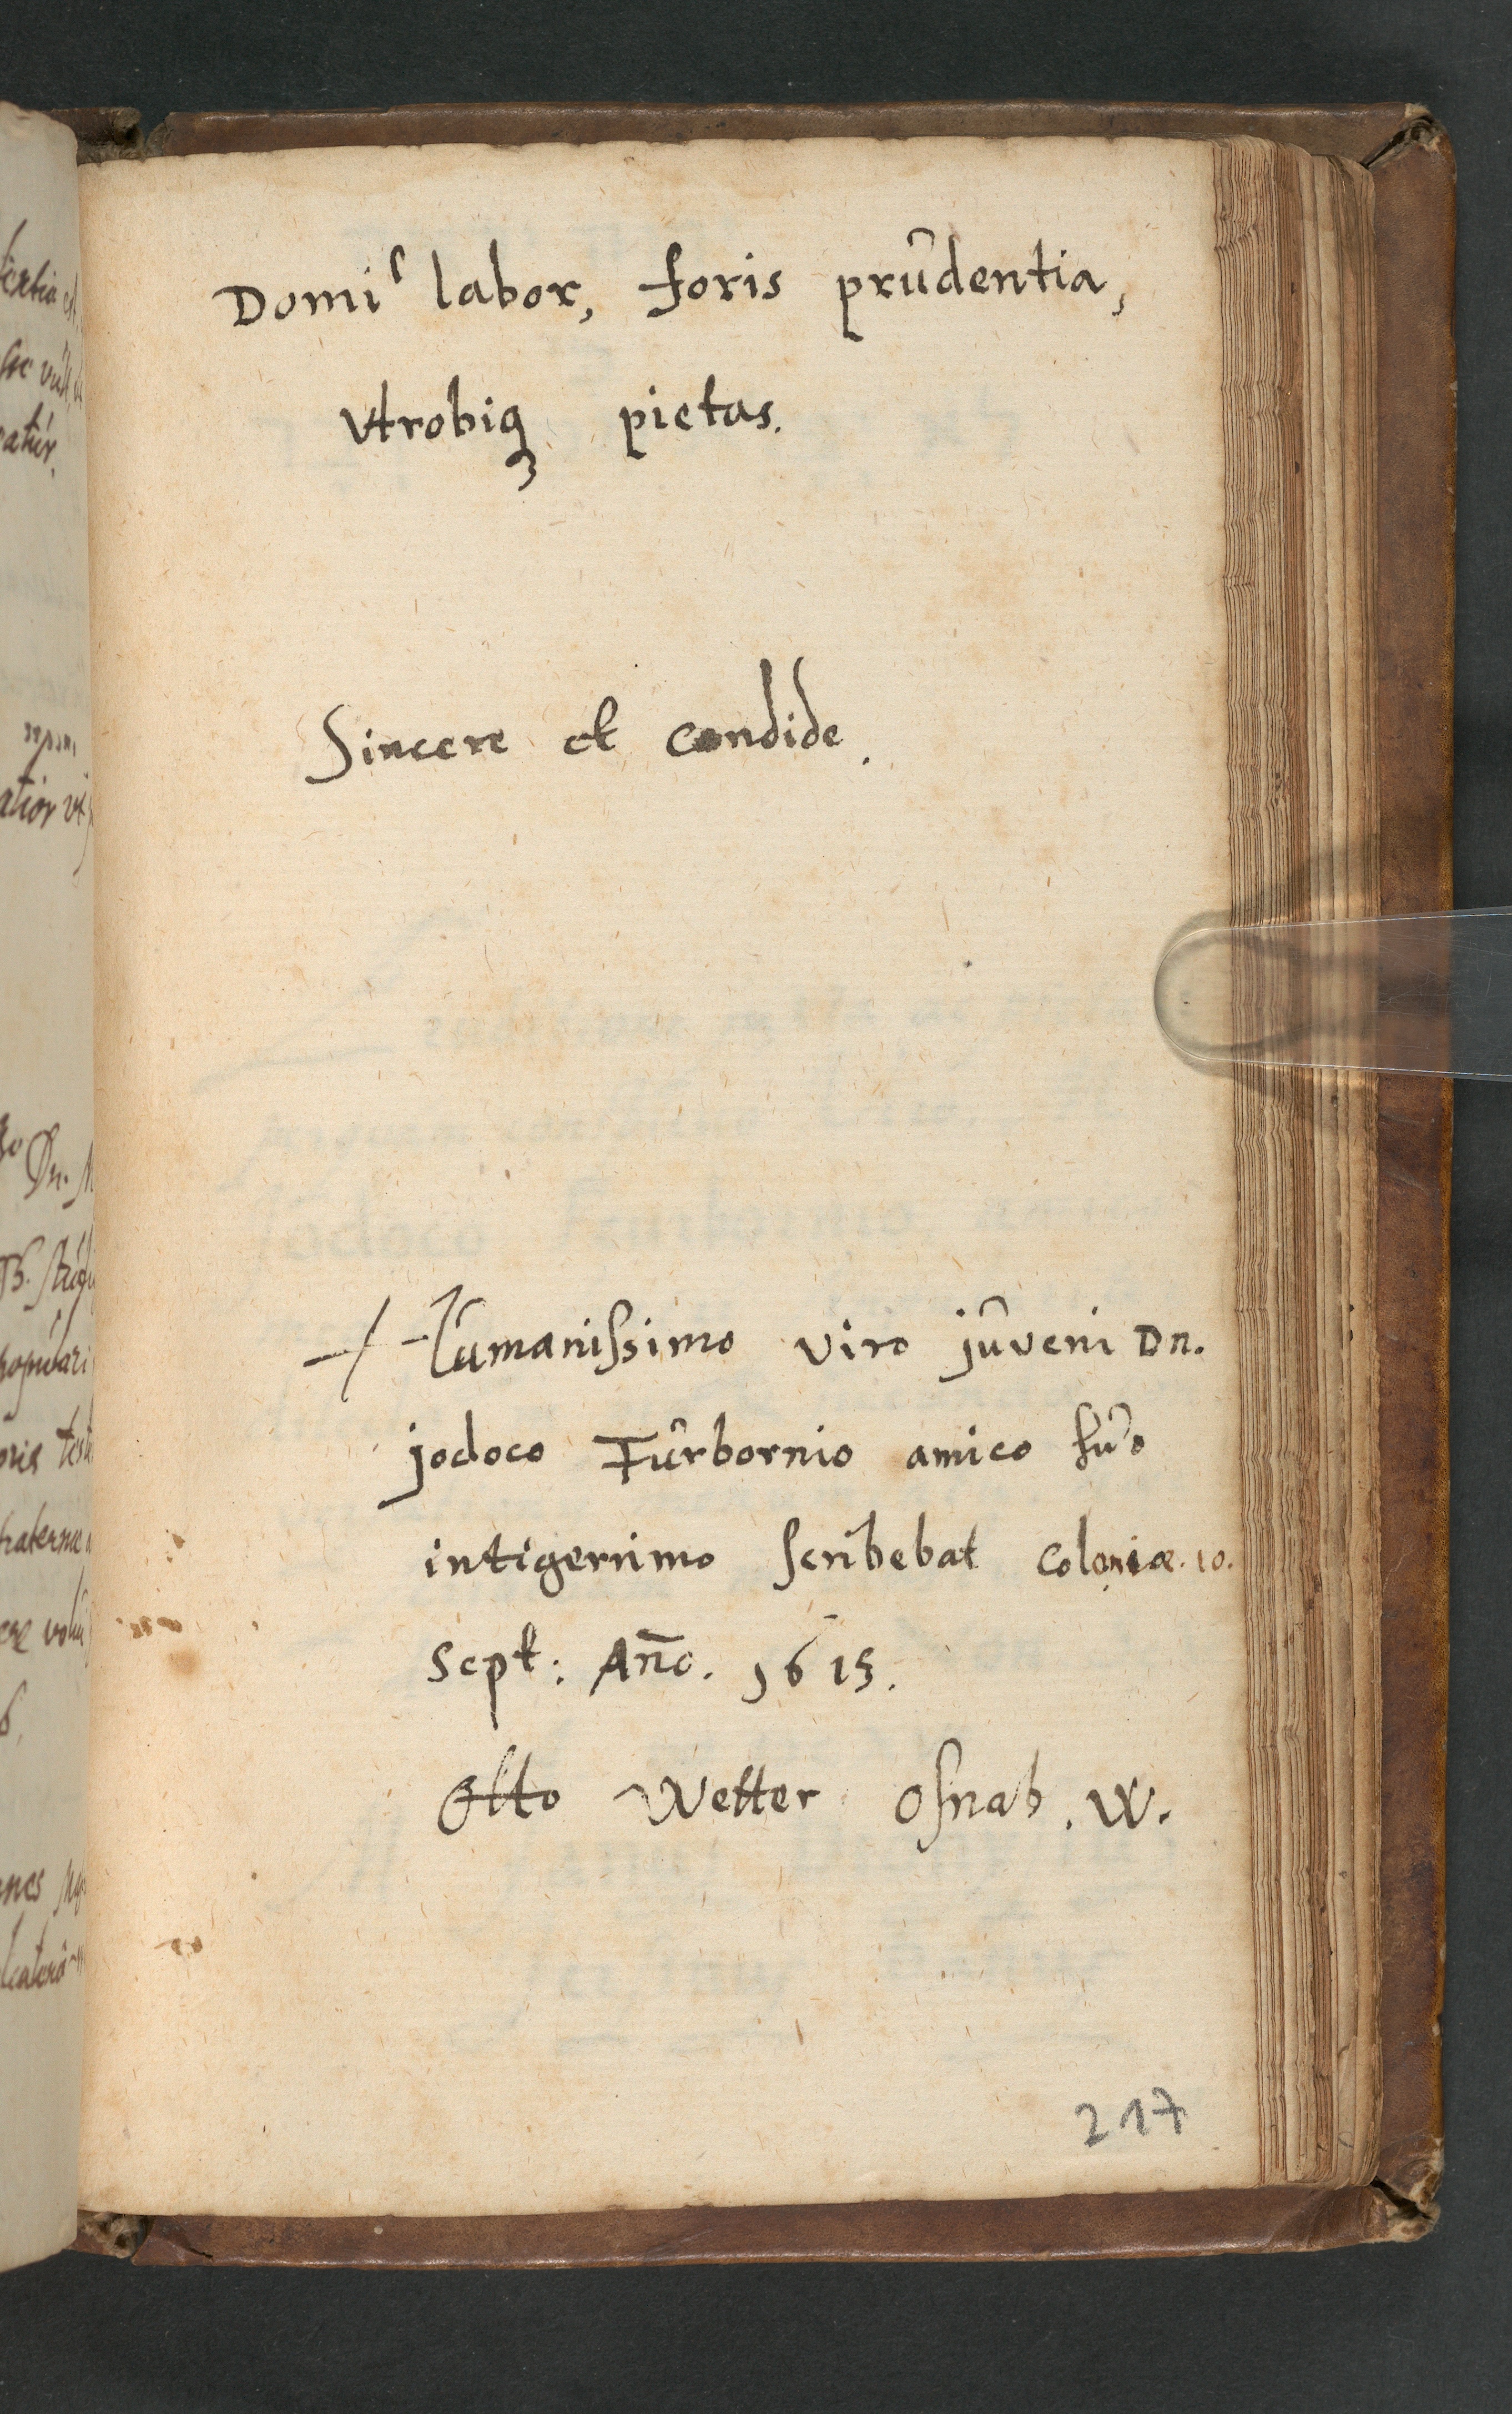 Domi labor, foris prûdentia,
Vtrobiqꝫ pietas.
Sincere et candide.
Hûmaniſsimo viro jûveni Dn.
jodoco Fûrbornio amico ſûo
intigerrimo ſcribebat Coloniæ. 10.
Sept: Año. 1615.
Otto Wetter Oſnab. W.
217